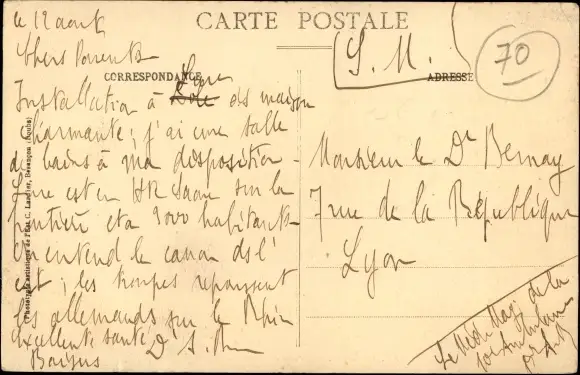 CARTE POSTALE
CORRESPONDANCE
ADRESSE
S. M.
70
le 12 aout
Chers Parents
Installation à maison
charmante ; j'ai une salle
de bains à ma disposition -
est en Hte Saone sur la
frontière et a 2000 habitants
On entend le canon ds l'
est ; les troupes repoussent
les allemands sur le Rhin
Excellente santé
Baisers
Monsieur le Dr Bernay
7 rue de la République
Lyon
Le Méd. Maj. de la